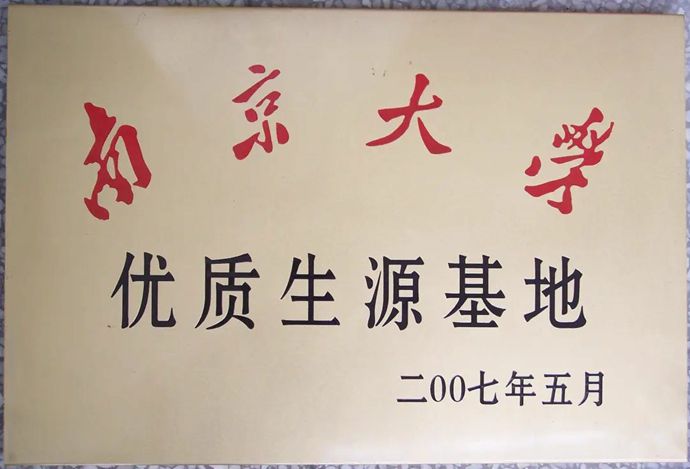 南京大学
优质生源基地
二00七年五月